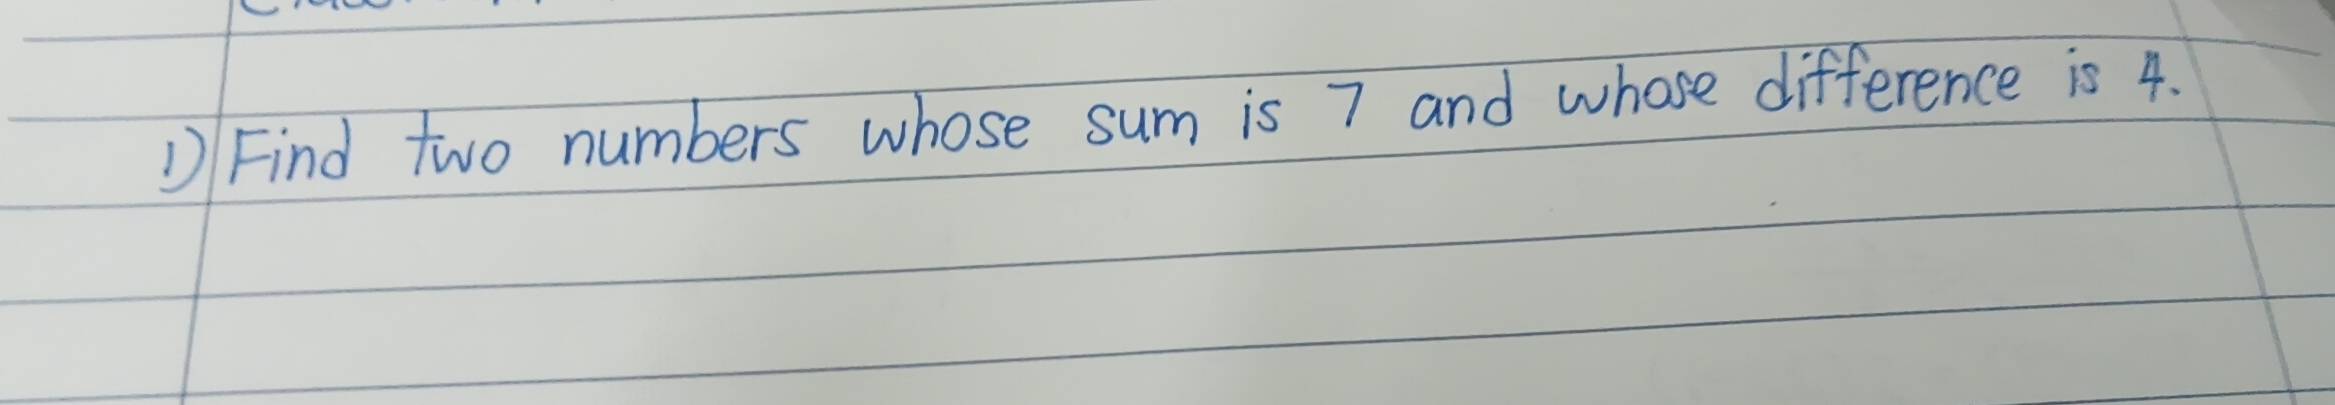 1) Find two numbers whose sum is 7 and whose difference is 4.